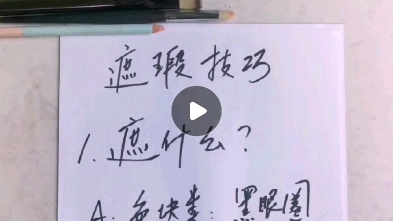 遮瑕技巧
1. 遮什么?
A: 色块类: 黑眼圈